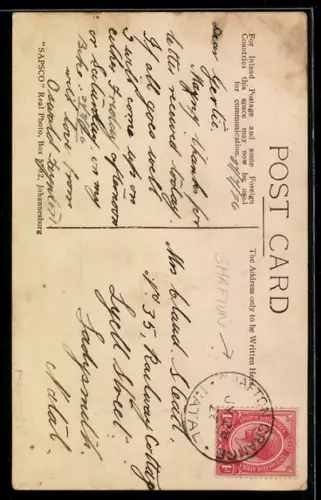 POST CARD
For Inland Postage and some Foreign
Countries this space may now be used
for communication.
The Address only to be Written Here.
Dear Gertie.
Many thanks for
letter received today.
If all goes well
I will come up on
either Friday afternoon
or Saturday on my
Bike.
with love from
"SAPSCO" Real Photo, Box 5792, Johannesburg
SHAFTON
Mrs Claud. Sleath.
No. 35, Railway Cottage
Lyell Street.
Ladysmith.
Natal.
SHAFTON GRANGE
NATAL